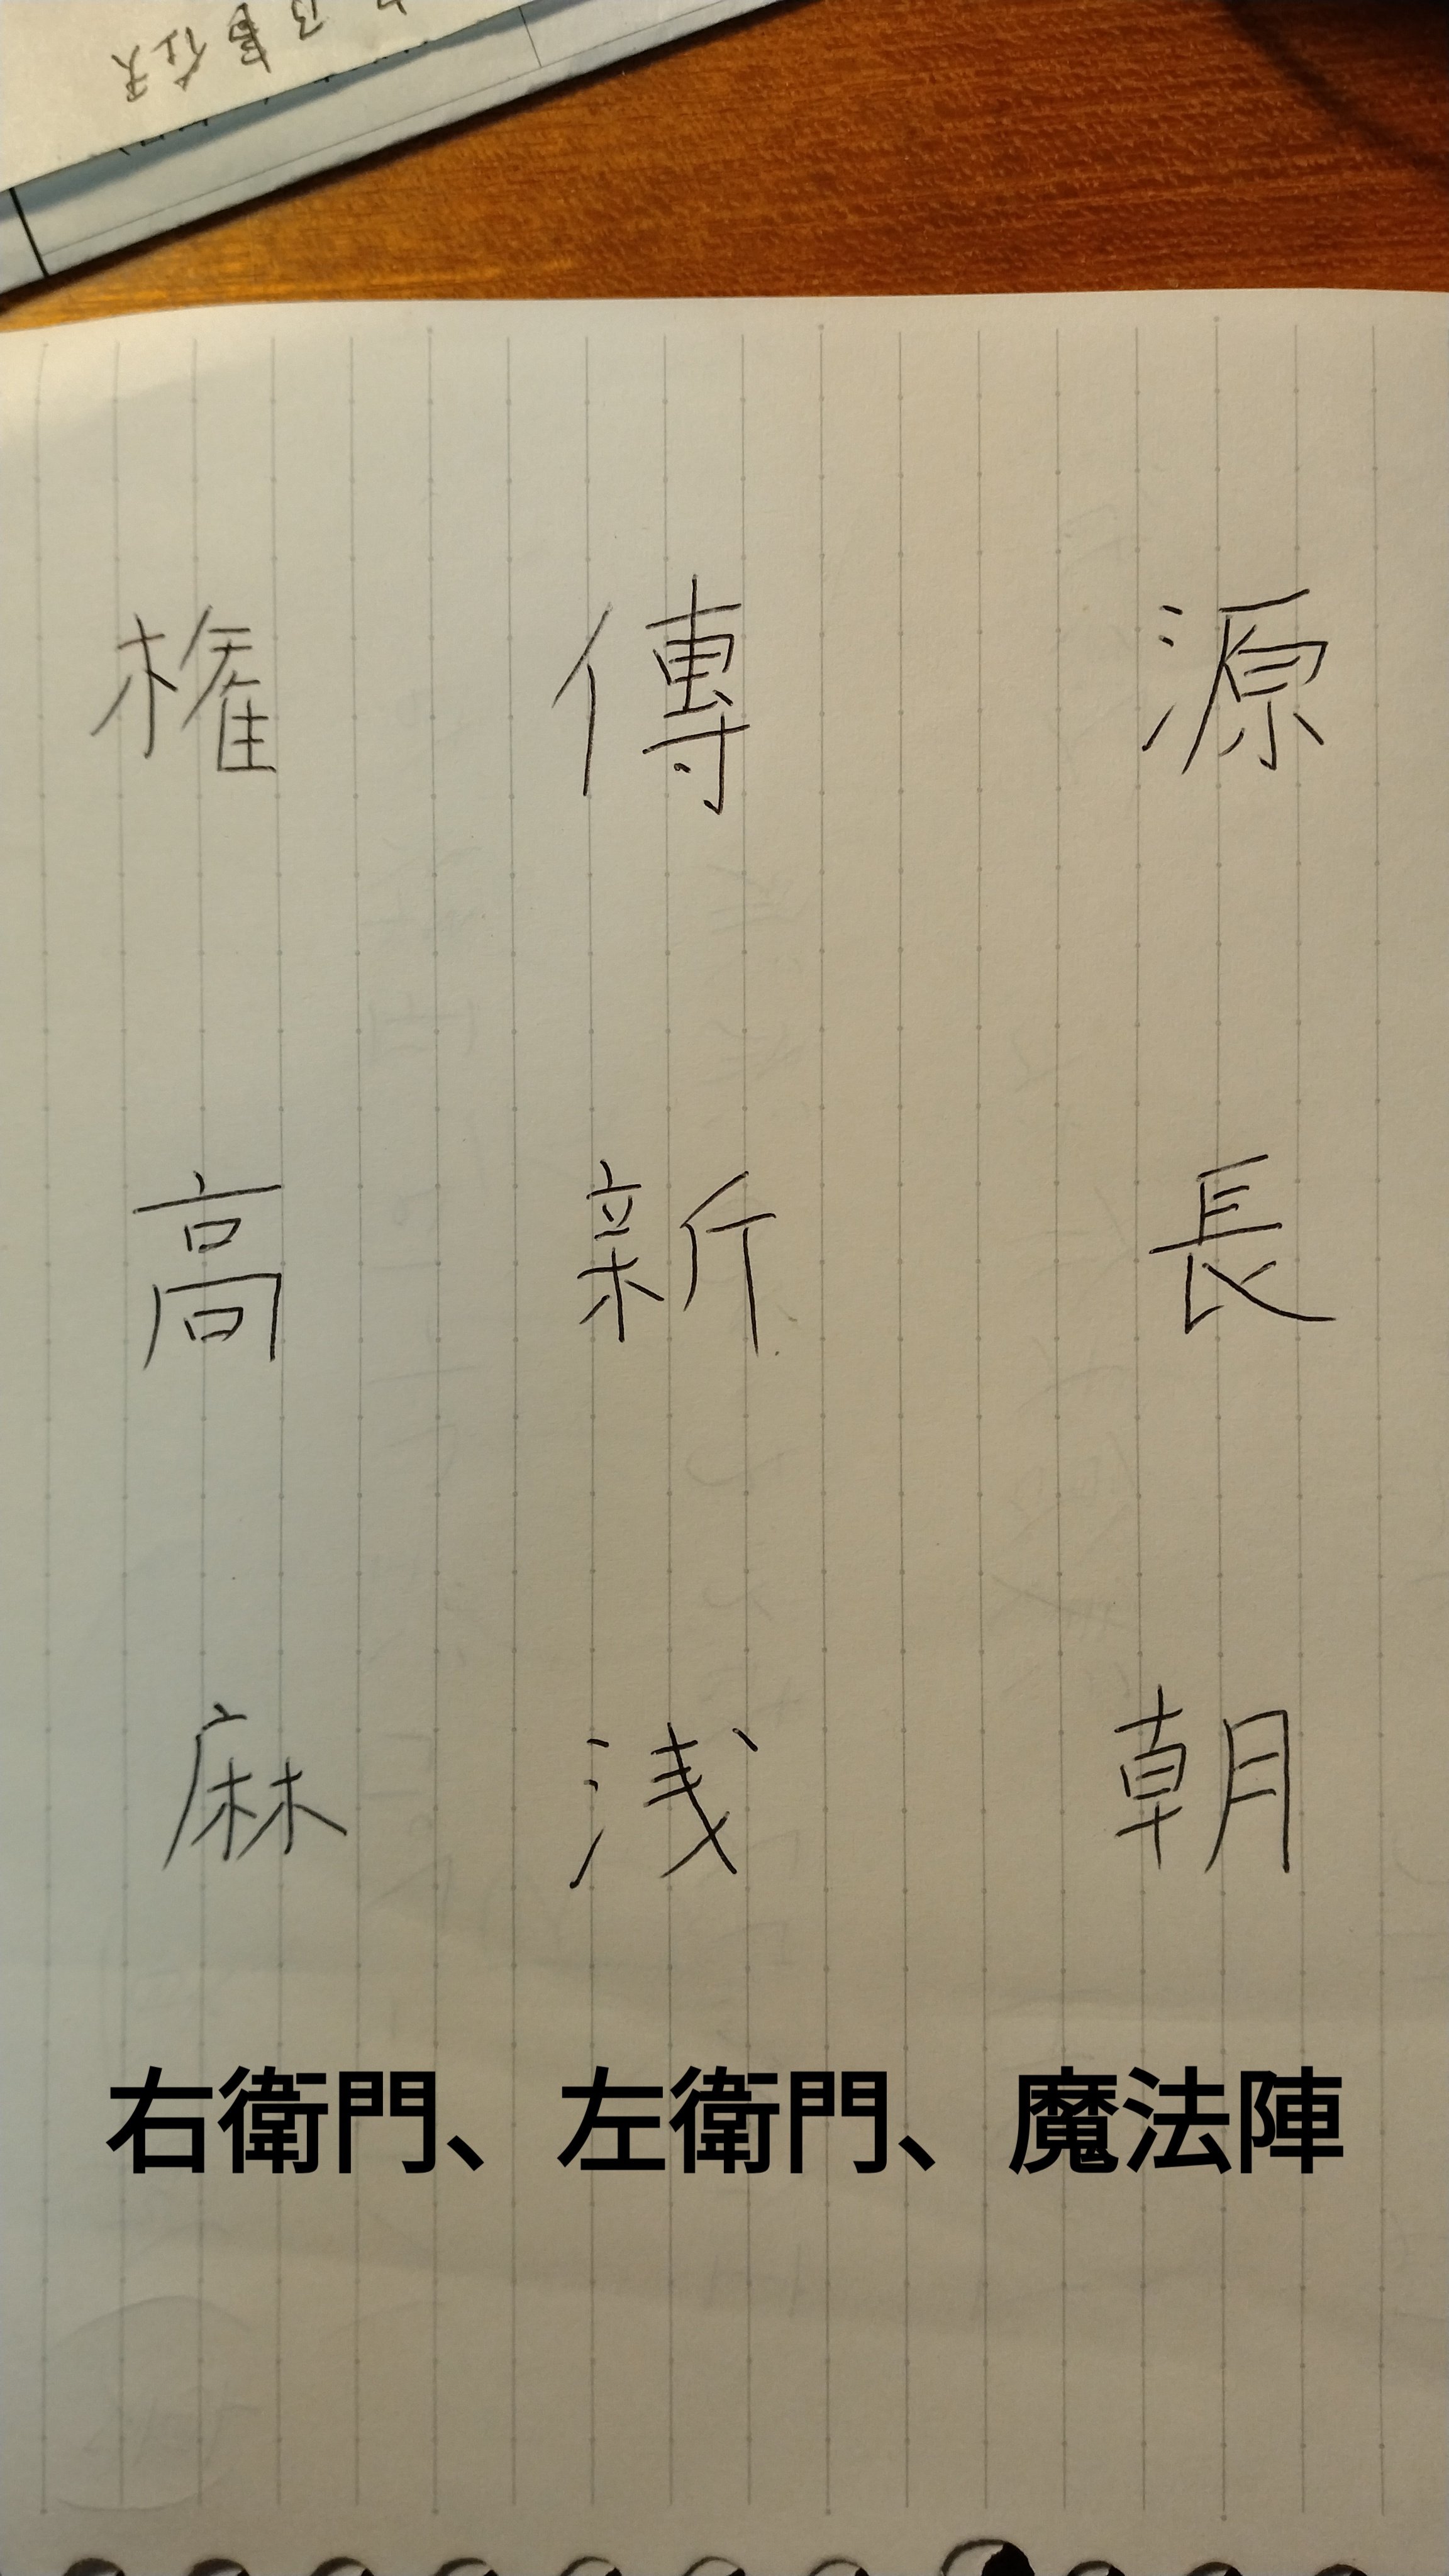 源長朝
傳新浅
権高麻
右衛門、左衛門、魔法陣